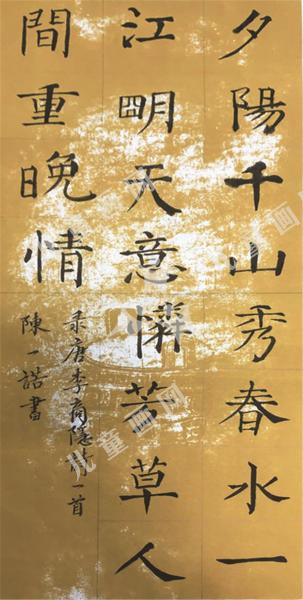 夕陽千山秀春水一
江明天意憐芳草人
間重晚情
录唐李商隱詩一首
陳一諾書